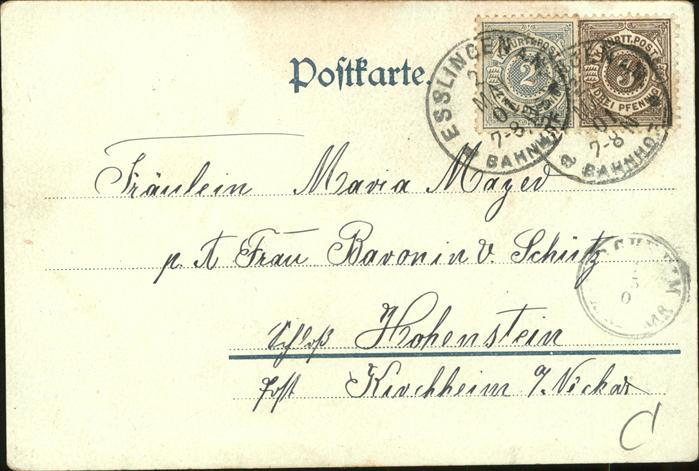 Postkarte.
K.WÜRTT.POST
2
K.WÜRTT.POST
3
DREI PFENNIG
ESSLINGEN AN
7-8 N
BAHNHOF
01
7-8 N
a BAHNHOF
Fräulein Maria Mayer
p. A Frau Baronin v. Schütz
Schloß Hohenstein
Post Kirchheim a/Neckar